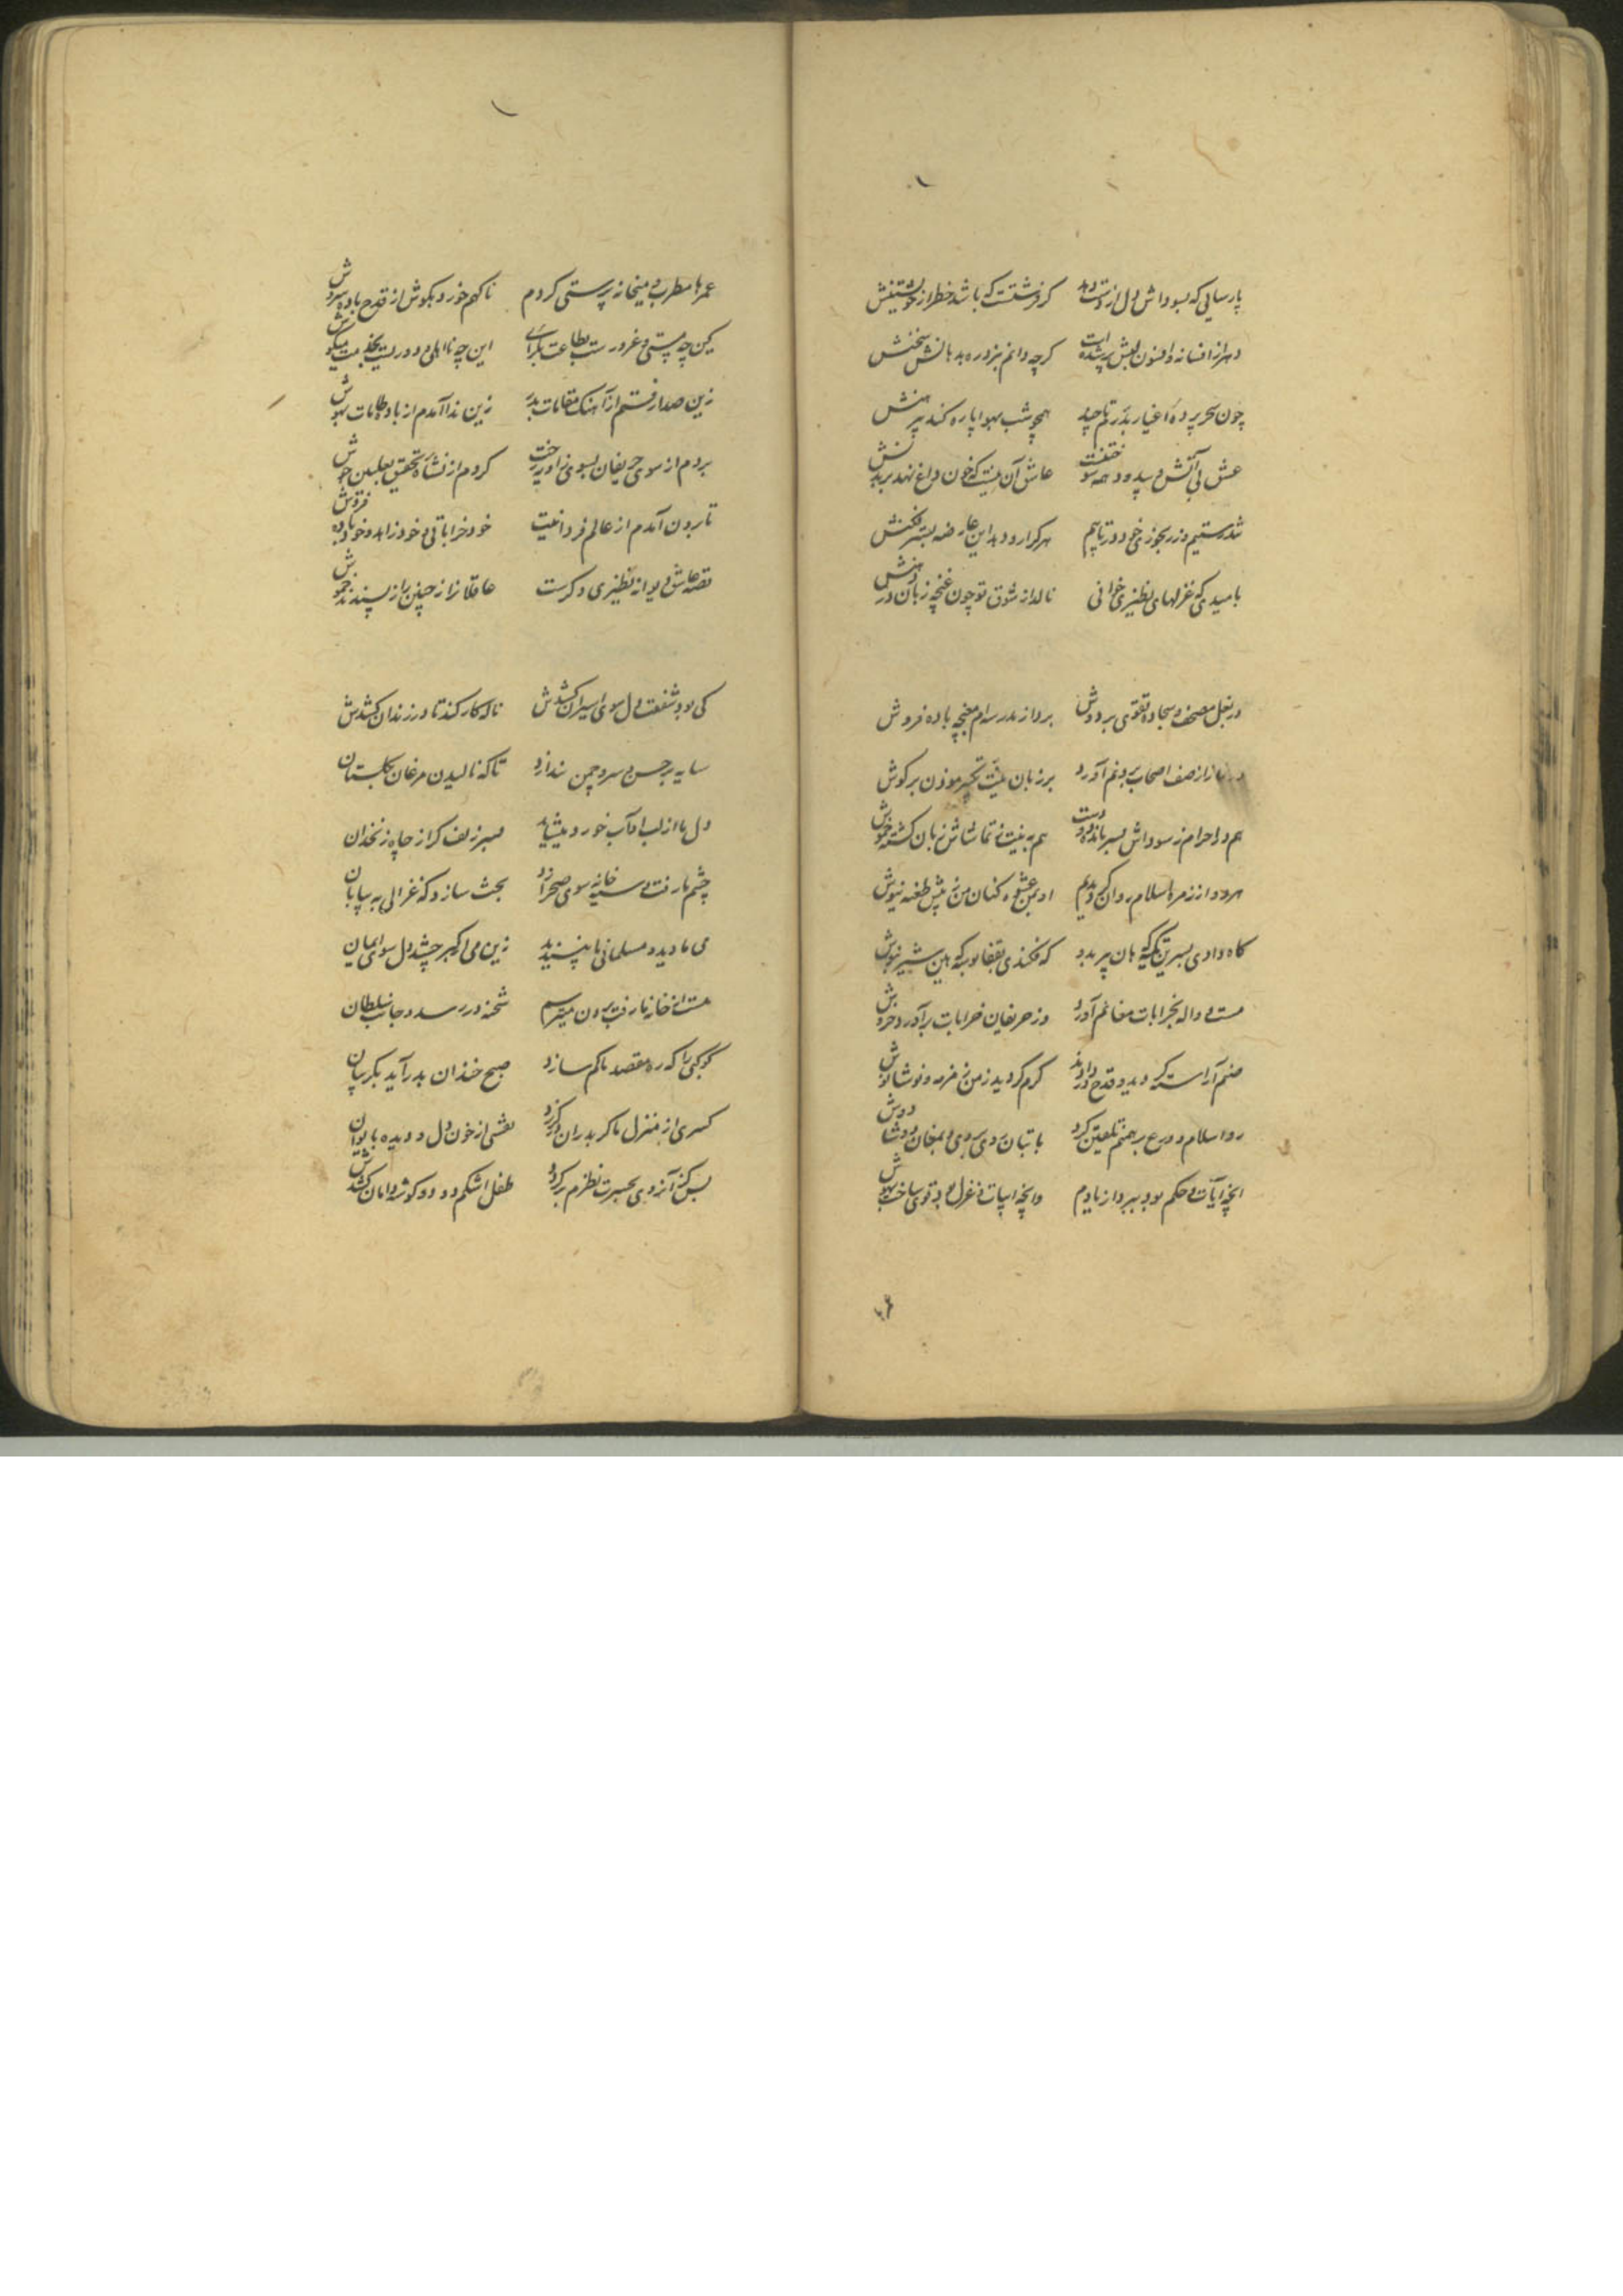 پارسایی که بسوداش دل از دست دهد کر فرشتست که باشد خطر از خویشتنش
دهر از افسانه و افسون لبش پر شده است کرچه دانم نبود ره بدهانش سخنش
چون سحر پرده اغیار بدرد تا چند همچو شب بهوا پاره کند پیرهنش
عشق بی آتش دل بود همه سو عاشق آن نیست که خون داغ نهد بر بدنش
تندرستیم و ز رنجوری خود در تابیم هر کرا رو دهد این عارضه بستر فکنش
بامیدی که غزلهای نظیری خوانی نالد از شوق تو چون غنچه زبان در دهنش
در بغل مصحف و سجاده تقوی بر دوش برد از مدرسه ام مغبچه باده فروش
در نماز از صف اصحاب برونم آورد بر زبان نیت تکبیر موذن بر کوش
هم در احرام ز سوداش بسر مانده دو دست هم به نیت ز تماشاش زبان کشته خموش
هر دو از زمره اسلام روان کردیدیم او بمن عشوه کنان من ز پیش طعنه نیوش
کاه دادی بسرین تکیه که هان پیر مدد که فکندی بقفا بوسه که هین شیر بنوش
مست و واله بخرابات مغانم آورد وز حریفان خرابات برآورد خروش
صنم آراسته کردید و قدح در دادند کرم کردید ز من زمزمه نوشانوش
رد اسلام و ورع برهمنم تلقین کرد با بتان روی بروی و بمغان دوشادوش
آنچه آیات و حکم بود ببرد از یادم وانچه ابیات و غزل بود بقوی ساخت بهوش
عمرها مطرب و میخانه پرستی کردم ناکهم خورد بکوش از قدح باده سروش
کین چه مستی و غرور ست بطاعت بکرای این چه نااهلی و دوریست بخدمت میکوش
زین صدا رفتم از آهنک مقامات بدر زین ندا آمدم از باده طامات بهوش
بردم از سوی حریفان بسوی زاویه رخت کردم از نشأه تحقیق بعلیین جوش
تا برون آمدم از عالم فردانیت خود خراباتی و خود زاهد و خود باده فروش
قصه عاشق دیوانه نظیری دکرست عاقلانرا ز چنین راز پسندند خموش
کی بود شفقت دل سوی اسیران کشدش ناله کار کند تا در زندان کشدش
سایه بر حسن و سرو چمن ندازد تا که نالیدن مرغان بکلستان
دل ما از لب او آب خورد میشاید بسر زلف کر از چاه زنخدان
چشم ما رفت سیه خانه سوی صحرا زد بحث سازد که غزالی به بیابان
می ما دید و مسلمانی ما نپسندید زین می ار کبر چشد دل سوی ایمان
مست از خانه ما رفت برون میترسم شحنه در رسد و جانب سلطان
کوکبی را که ره مقصد ما کم سازد صبح خندان بدر آید بکریبان
کسری از منزل ما کر بدر ان در کذرد نقشی از خون دل و دیده بایوان
بس کز آزردی بحسرت نظرم بر کردد طفل اشکم دود و کوشه دامان کشدش